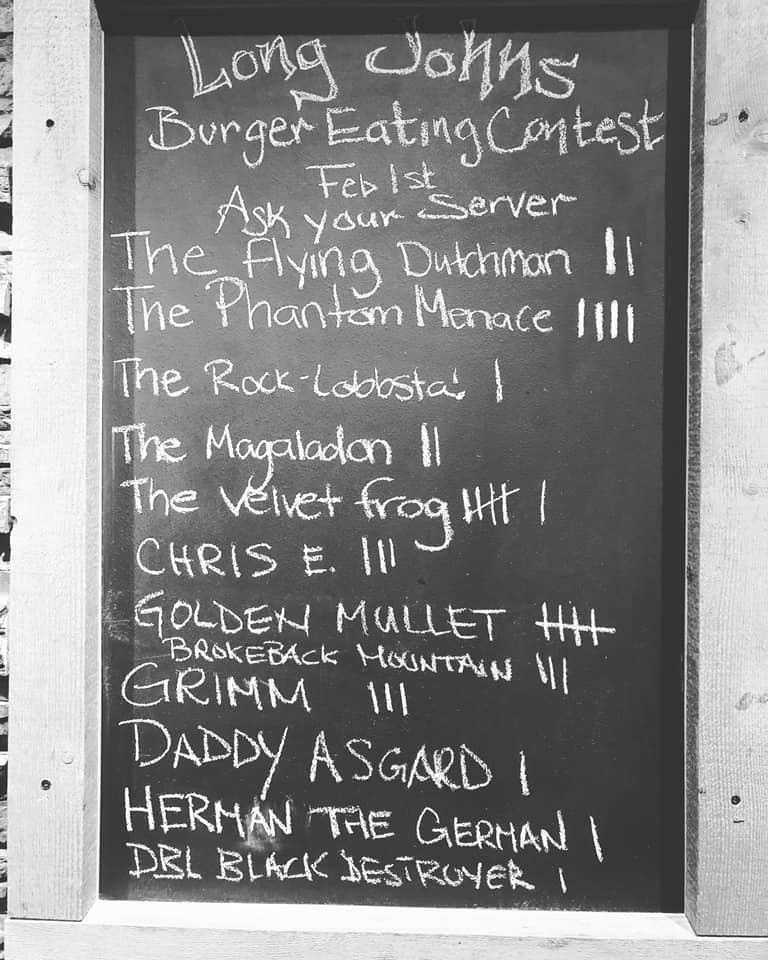 Long Johns
Burger Eating Contest
Feb 1st
Ask your Server
The Flying Dutchman ||
The Phantom Menace ||||
The Rock-Lobbsta! |
The Magaladon ||
The Velvet frog |||| |
CHRIS E. |||
GOLDEN MULLET ||||
BROKEBACK MOUNTAIN |||
GRIMM |||
DADDY ASGARD |
HERMAN THE GERMAN |
DBL BLACK DESTROYER |